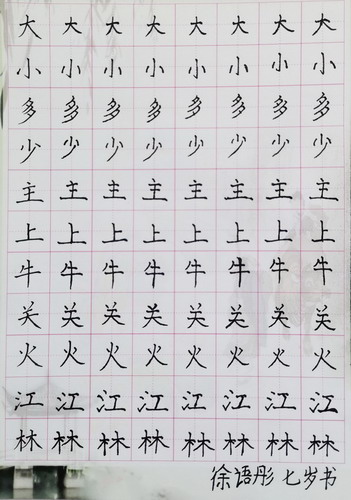 大大大大大大大大
小小小小小小小小
多多多多多多多多
少少少少少少少少
主主主主主主主主
上上上上上上上上
牛牛牛牛牛牛牛牛
关关关关关关关关
火火火火火火火火
江江江江江江江江
林林林林林林林林
徐语彤 七岁书